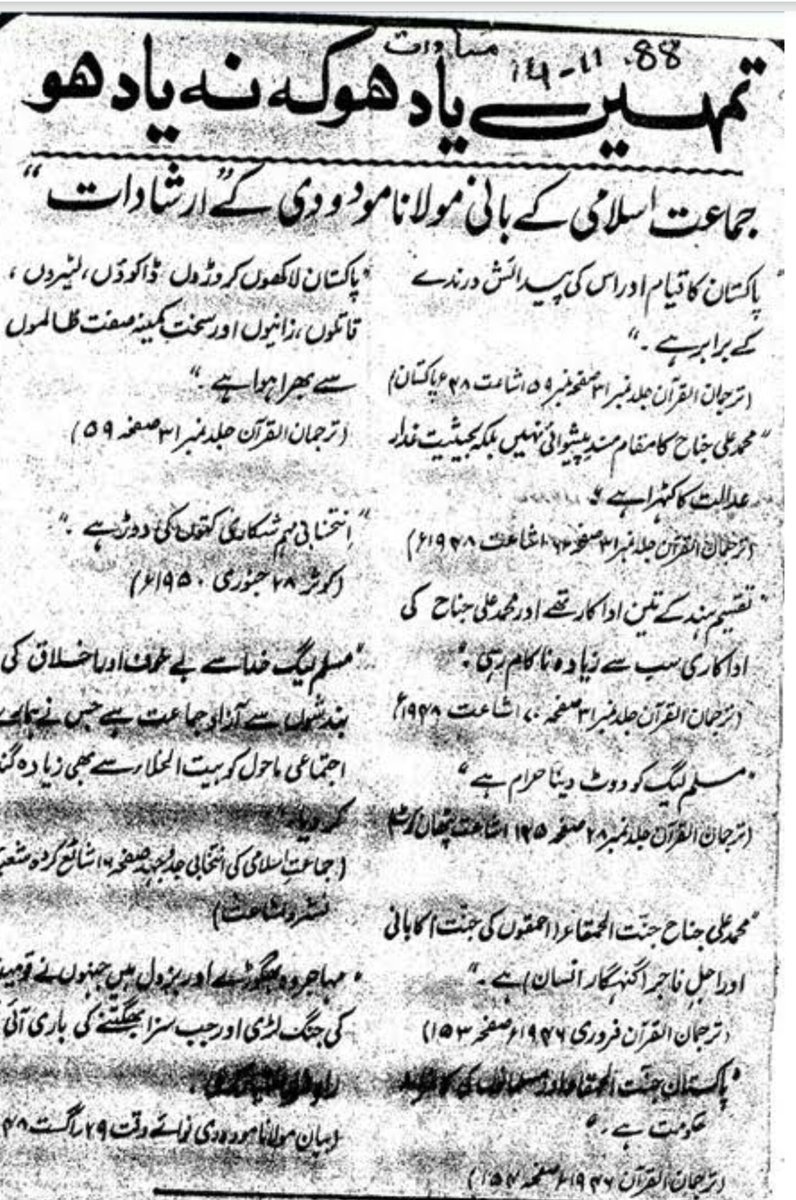 مساوات
14-11-88
تمہیں یاد ہو کہ نہ یاد ہو
جماعت اسلامی کے بانی مولانا مودودی کے "ارشادات"
"پاکستان کا قیام اور اس کی پیدائش درندے
کے برابر ہے۔"
(ترجمان القرآن جلد نمبر ۳۱ صفحہ نمبر ۵۹ اشاعت ۴۸ء پاکستان)
"محمد علی جناح کا مقام مسند پیشوائی نہیں بلکہ بحیثیت غدار
عدالت کا کٹہرا ہے۔"
(ترجمان القرآن جلد نمبر ۳۱ صفحہ اشاعت ۱۹۴۸ء)
"تقسیم ہند کے تین اداکار تھے اور محمد علی جناح کی
اداکاری سب سے زیادہ ناکام رہی۔"
(ترجمان القرآن جلد نمبر ۳۱ صفحہ ۷۰ اشاعت ۱۹۴۸ء)
"مسلم لیگ کو ووٹ دینا حرام ہے"
(ترجمان القرآن جلد نمبر ۲۸ صفحہ ۱۴۵ اشاعت پٹھان کوٹ)
"محمد علی جناح جنت الحمقاء (احمقوں کی جنت) کا بانی
اور اجل فاجر (گنہگار انسان) ہے۔"
(ترجمان القرآن فروری ۱۹۴۶ء صفحہ ۱۵۳)
"پاکستان جنت الحمقاء اور مسلمانوں کی
حکومت ہے۔"
(ترجمان القرآن ۱۹۴۶ء صفحہ ۱۵۴)
"پاکستان لاکھوں کروڑوں ڈاکوؤں، لٹیروں،
قاتلوں، زانیوں اور سخت کمینہ صفت ظالموں
سے بھرا ہوا ہے۔"
(ترجمان القرآن جلد نمبر ۳۱ صفحہ ۵۹)
"انتخابی مہم شکاری کتوں کی دوڑ ہے۔"
(کوثر ۲۸ جنوری ۱۹۵۰ء)
"مسلم لیگ خدا سے بے خوف اور اخلاق کی
بندشوں سے آزاد جماعت ہے جس نے ہمارے
اجتماعی ماحول کو بیت الخلاء سے بھی زیادہ
کر دیا۔"
(جماعت اسلامی کی انتخابی جدوجہد صفحہ ۱۶ شائع کردہ
نشر و اشاعت)
"مہاجر وہ بھگوڑے اور بزدل ہیں جنہوں نے
کی جنگ لڑی اور جب سزا بھگتنے کی باری آئی

(بیان مولانا مودودی نوائے وقت ۲۹ اگست ۴۸